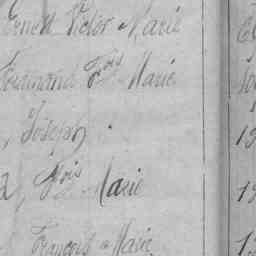 Ernest Victor Marie
Ferdinand Fois Marie
, Joseph .
Fois Marie
François Marie